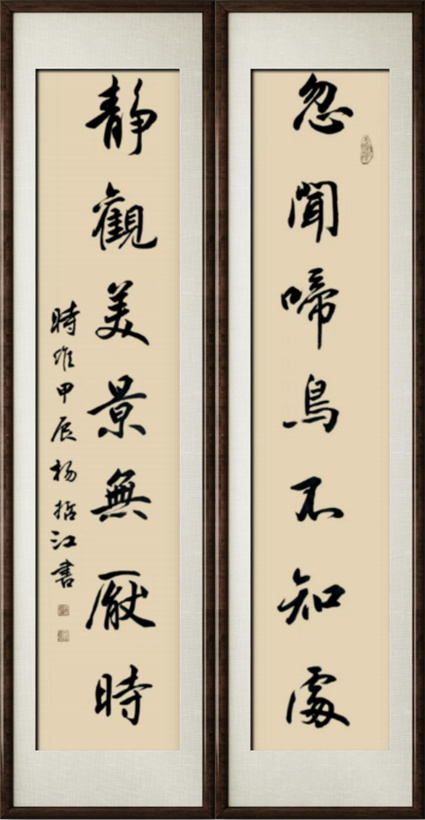 忽聞啼鳥不知處
靜觀美景無厭時
時維甲辰楊哲江書